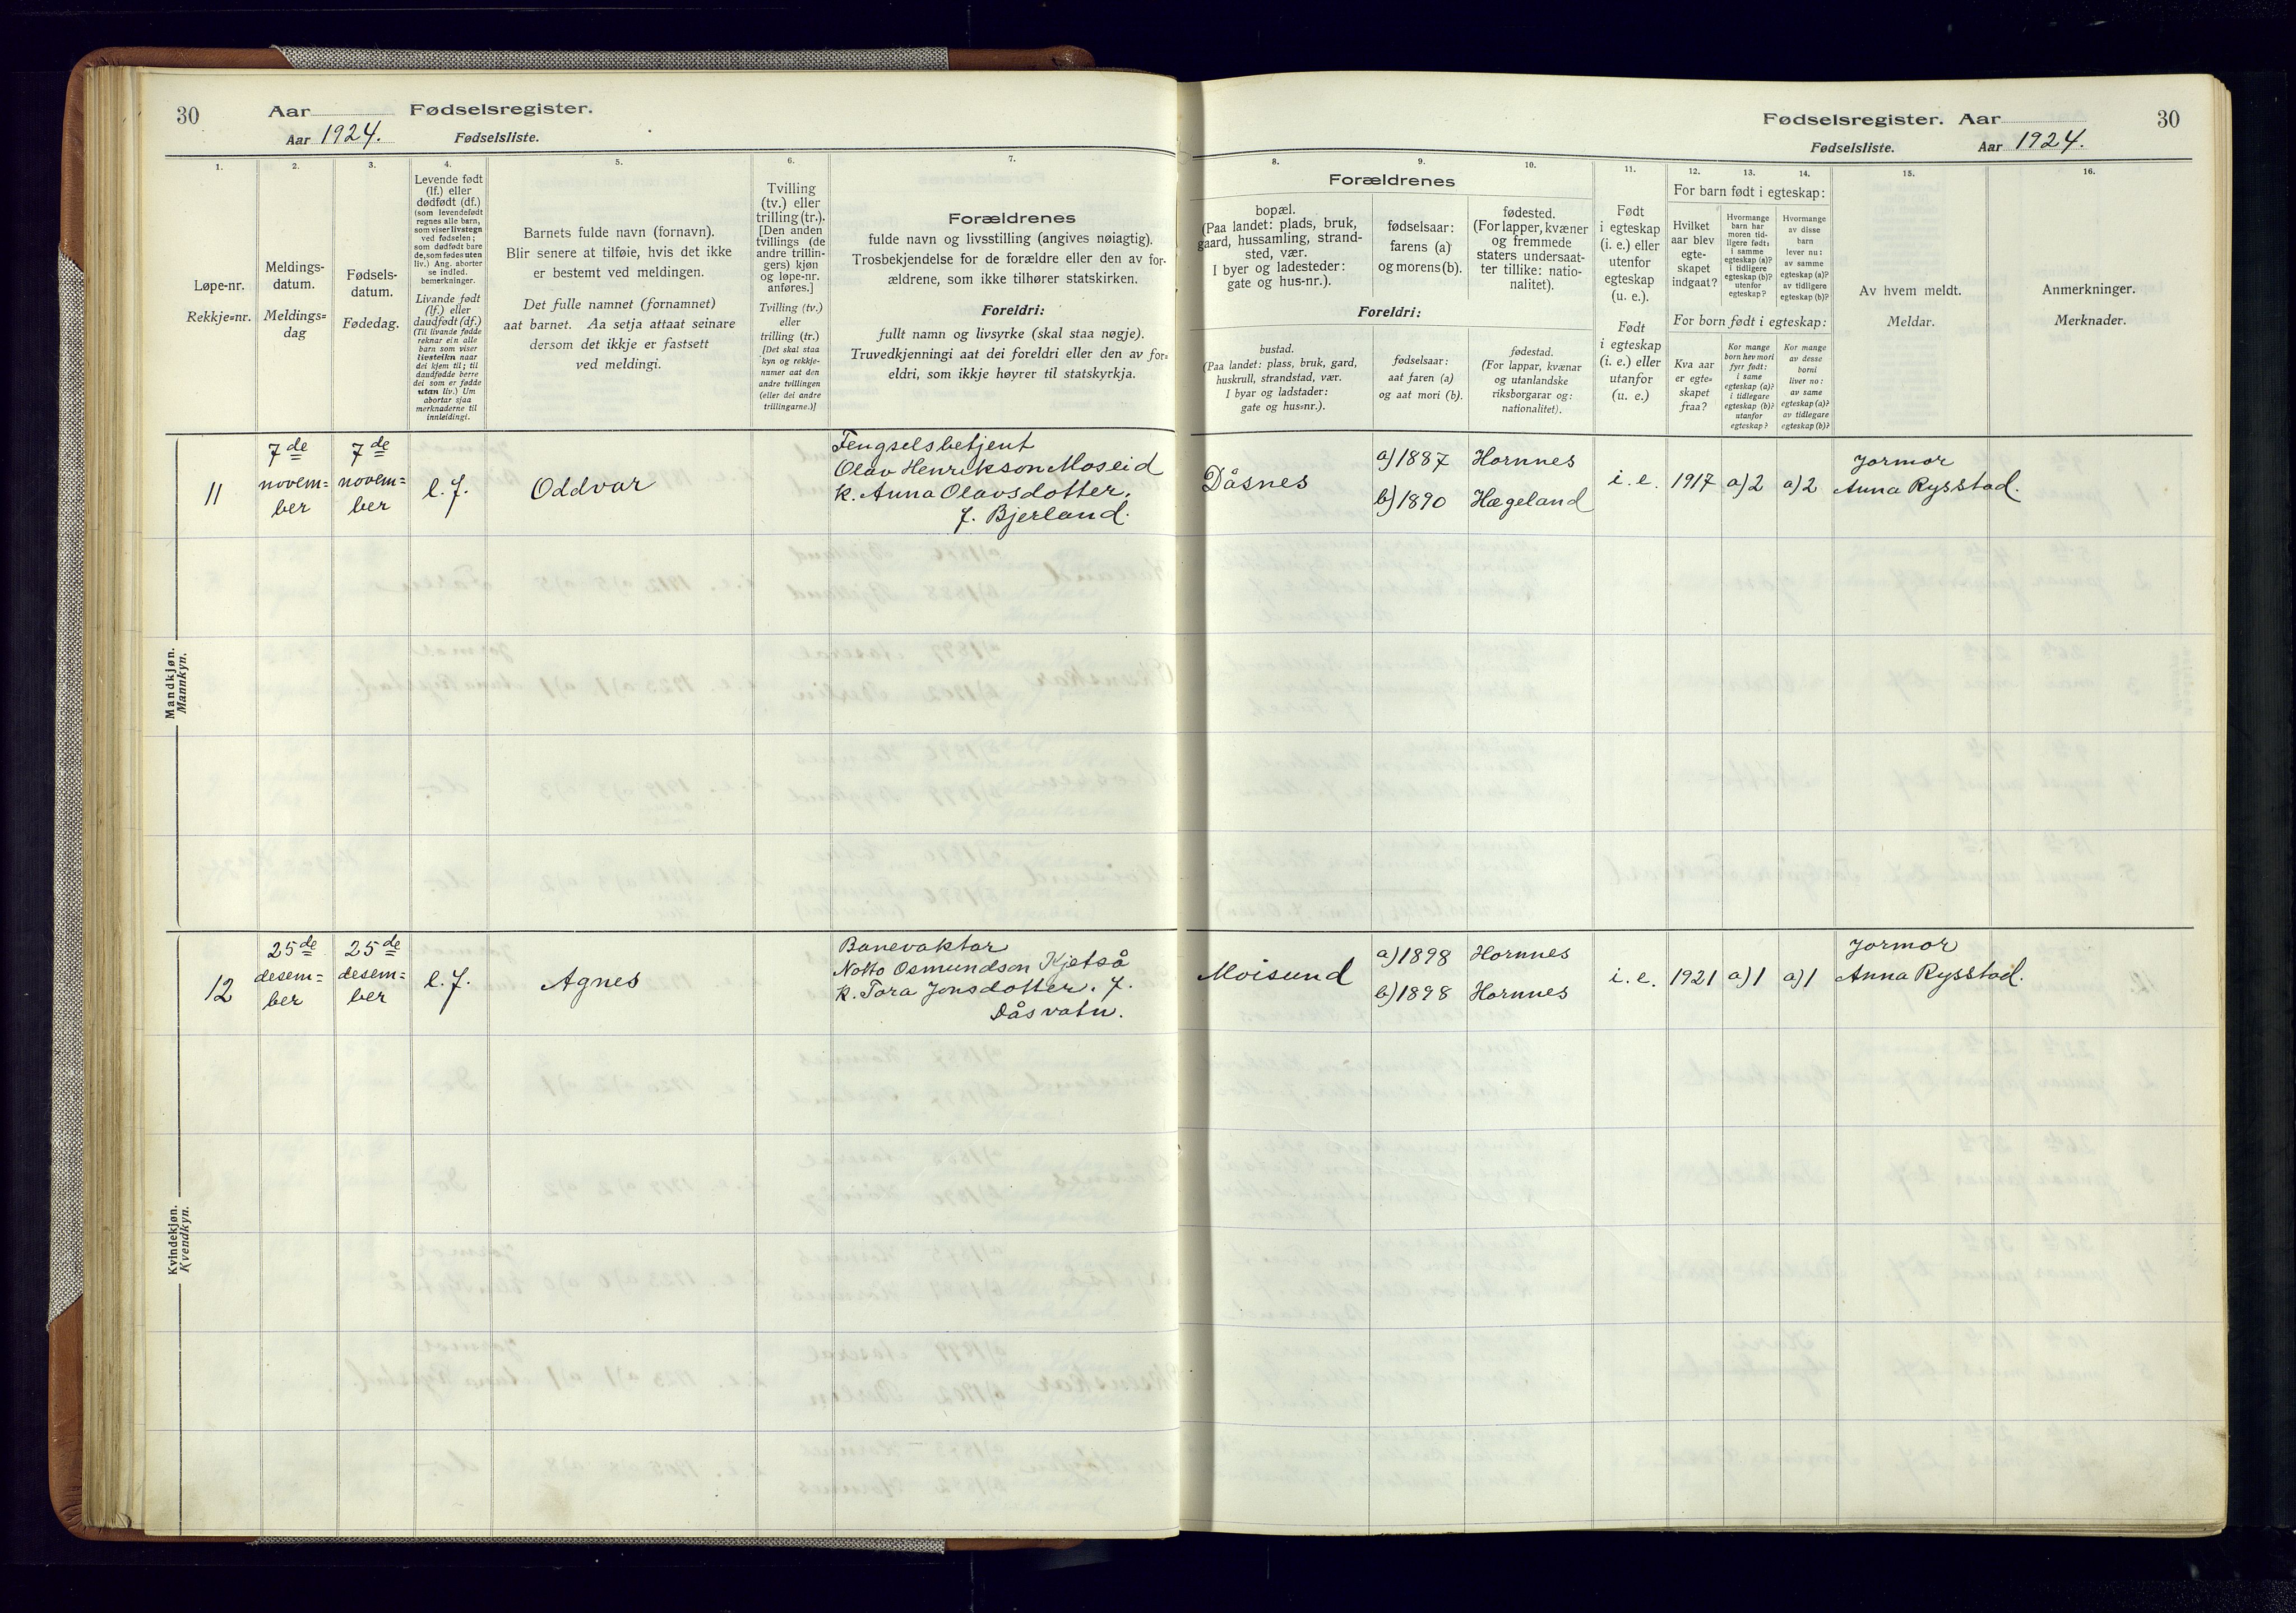 30 Aar Fødselsregister.
Aar 1924. Fødselsliste.
Fødselsregister. Aar 30
Fødselsliste. Aar 1924.
1. 2. 3. 4. 5. 6. 7.
Løpe-nr.
Rekkje=nr.
Meldings-
datum.
Meldings=
dag
Fødsels-
datum.
Fødedag.
Levende født
(lf.) eller
dødfødt (df.)
(som levendefødt
regnes alle barn,
som viser livstegn
ved fødselen;
som dødfødt bare
de, som fødes uten
liv.) Ang. aborter
se indled.
bemerkninger.
Livande født
(lf.) eller
daudfødt (df.)
(Til livande fødde
reknar ein alle
barn som viser
livsteikn naar
dei kjem til; til
daudfødde berre
dei som er fødde
utan liv.) Um
abortar sjaa
merknaderne til
innleidingi.
Barnets fulde navn (fornavn).
Blir senere at tilføie, hvis det ikke
er bestemt ved meldingen.
Det fulle namnet (fornamnet)
aat barnet. Aa setja attaat seinare
dersom det ikkje er fastsett
ved meldingi.
Tvilling
(tv.) eller
trilling (tr.).
[Den anden
tvillings (de
andre trillin-
gers) kjøn
og løpe-nr.
anføres.]
Tvilling (tv.)
eller
trilling (tr.)
[Det skal staa
kyn og rekkje-
numer aat den
andre tvillingen
(eller dei andre
trillingarne.)]
Forældrenes
fulde navn og livsstilling (angives nøiagtig).
Trosbekjendelse for de forældre eller den av for-
ældrene, som ikke tilhører statskirken.
Foreldri:
fullt namn og livsyrke (skal staa nøgje).
Truvedkjenningi aat dei foreldri eller den av for=
eldri, som ikkje høyrer til statskyrkja.
8. 9. 10. 11. 12. 13. 14. 15. 16.
Forældrenes
bopæl.
(Paa landet: plads, bruk,
gaard, hussamling, strand-
sted, vær.
I byer og ladesteder:
gate og hus-nr.).
fødselsaar:
farens (a)
og morens (b).
fødested.
(For lapper, kvæner
og fremmede
staters undersaat-
ter tillike: natio-
nalitet).
Foreldri:
bustad.
(Paa landet: plass, bruk, gard,
huskrull, strandstad, vær.
I byar og ladstader:
gate og hus=nr.).
fødselsaar:
aat faren (a)
og aat mori (b).
fødestad.
(For lappar, kvænar
og utanlandske
riksborgarar og:
nationalitet).
Født
i egteskap
(i. e.) eller
utenfor
egteskap
(u. e.).
Født
i egteskap
(i. e.) eller
utanfor
(u. e.)
For barn født i egteskap:
Hvilket
aar blev
egte-
skapet
indgaat?
Hvormange
barn har
moren tid-
ligere født:
i samme
egteskap (a)?
i tidligere
egteskap (b)?
utenfor
egteskap?
Hvormange
av disse
barn
lever nu:
av samme
egteskap (a)?
av tidligere
egteskap (b)?
For born født i egteskap:
Kva aar
er egte=
skapet
fraa?
Kor mange
born hev mori
fyrr født:
i same
egteskap (a)?
i tidlegare
egteskap (b)?
utanfor
egteskap?
Kor mange
av desse
borni
liver no:
av same
egteskap (a)?
av tidlegare
egteskap (b)?
Av hvem meldt.
Meldar.
Anmerkninger.
Merknader.
Mandkjøn.
Mannkyn.
11
7de
novem=
ber
7de
novem=
ber
l.f.
Oddvar
Fengselsbetjent
Olav Henrikson Moseid
k. Anna Olavsdotter,
f. Bjerland.
Dåsnes
a) 1887 Hornnes
b) 1890 Hægeland
i. e. 1917 a) 2 a) 2
Jormor
Anna Rysstad.
Kvindekjøn.
Kvendkyn.
12
25de
desem=
ber
25de
desem=
ber
l.f.
Agnes
Banevaktar
Notto Osmundson Kjetså
k. Tora Jonsdotter. f.
Dåsvatn.
Moisund
a) 1898 Hornnes
b) 1898 Hornnes
i. e. 1921 a) 1 a) 1
Jormor
Anna Rysstad.